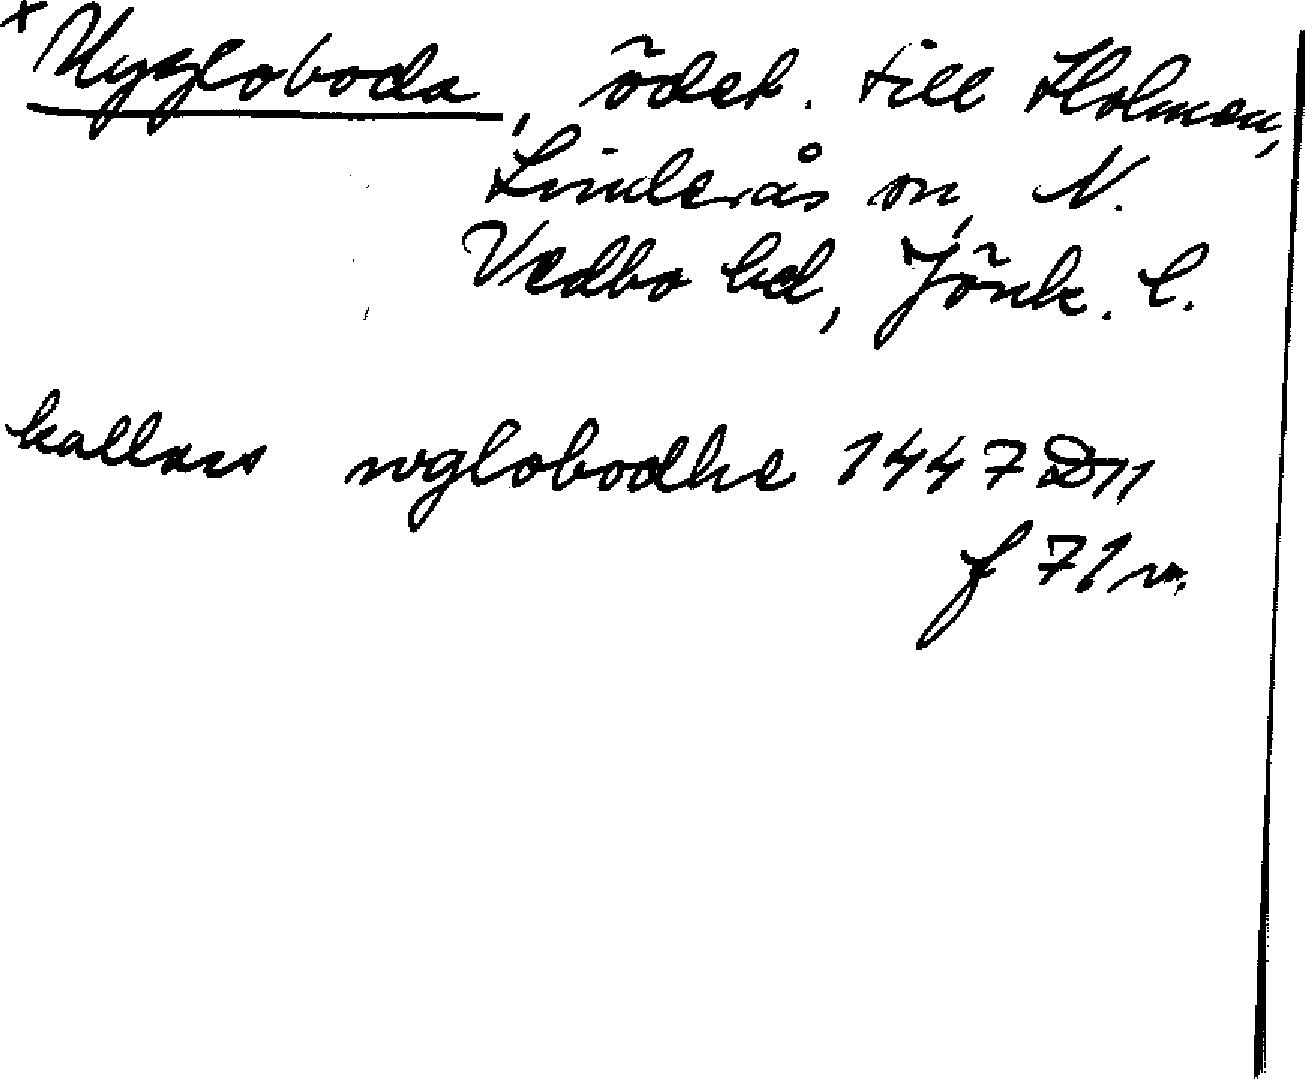 + Uggloboda, ödet. till Holmen,
Linderås sn, N.
Vedbo hd, Jönk. l.
kallass wglobodhe 1447 D11
f 71 v.